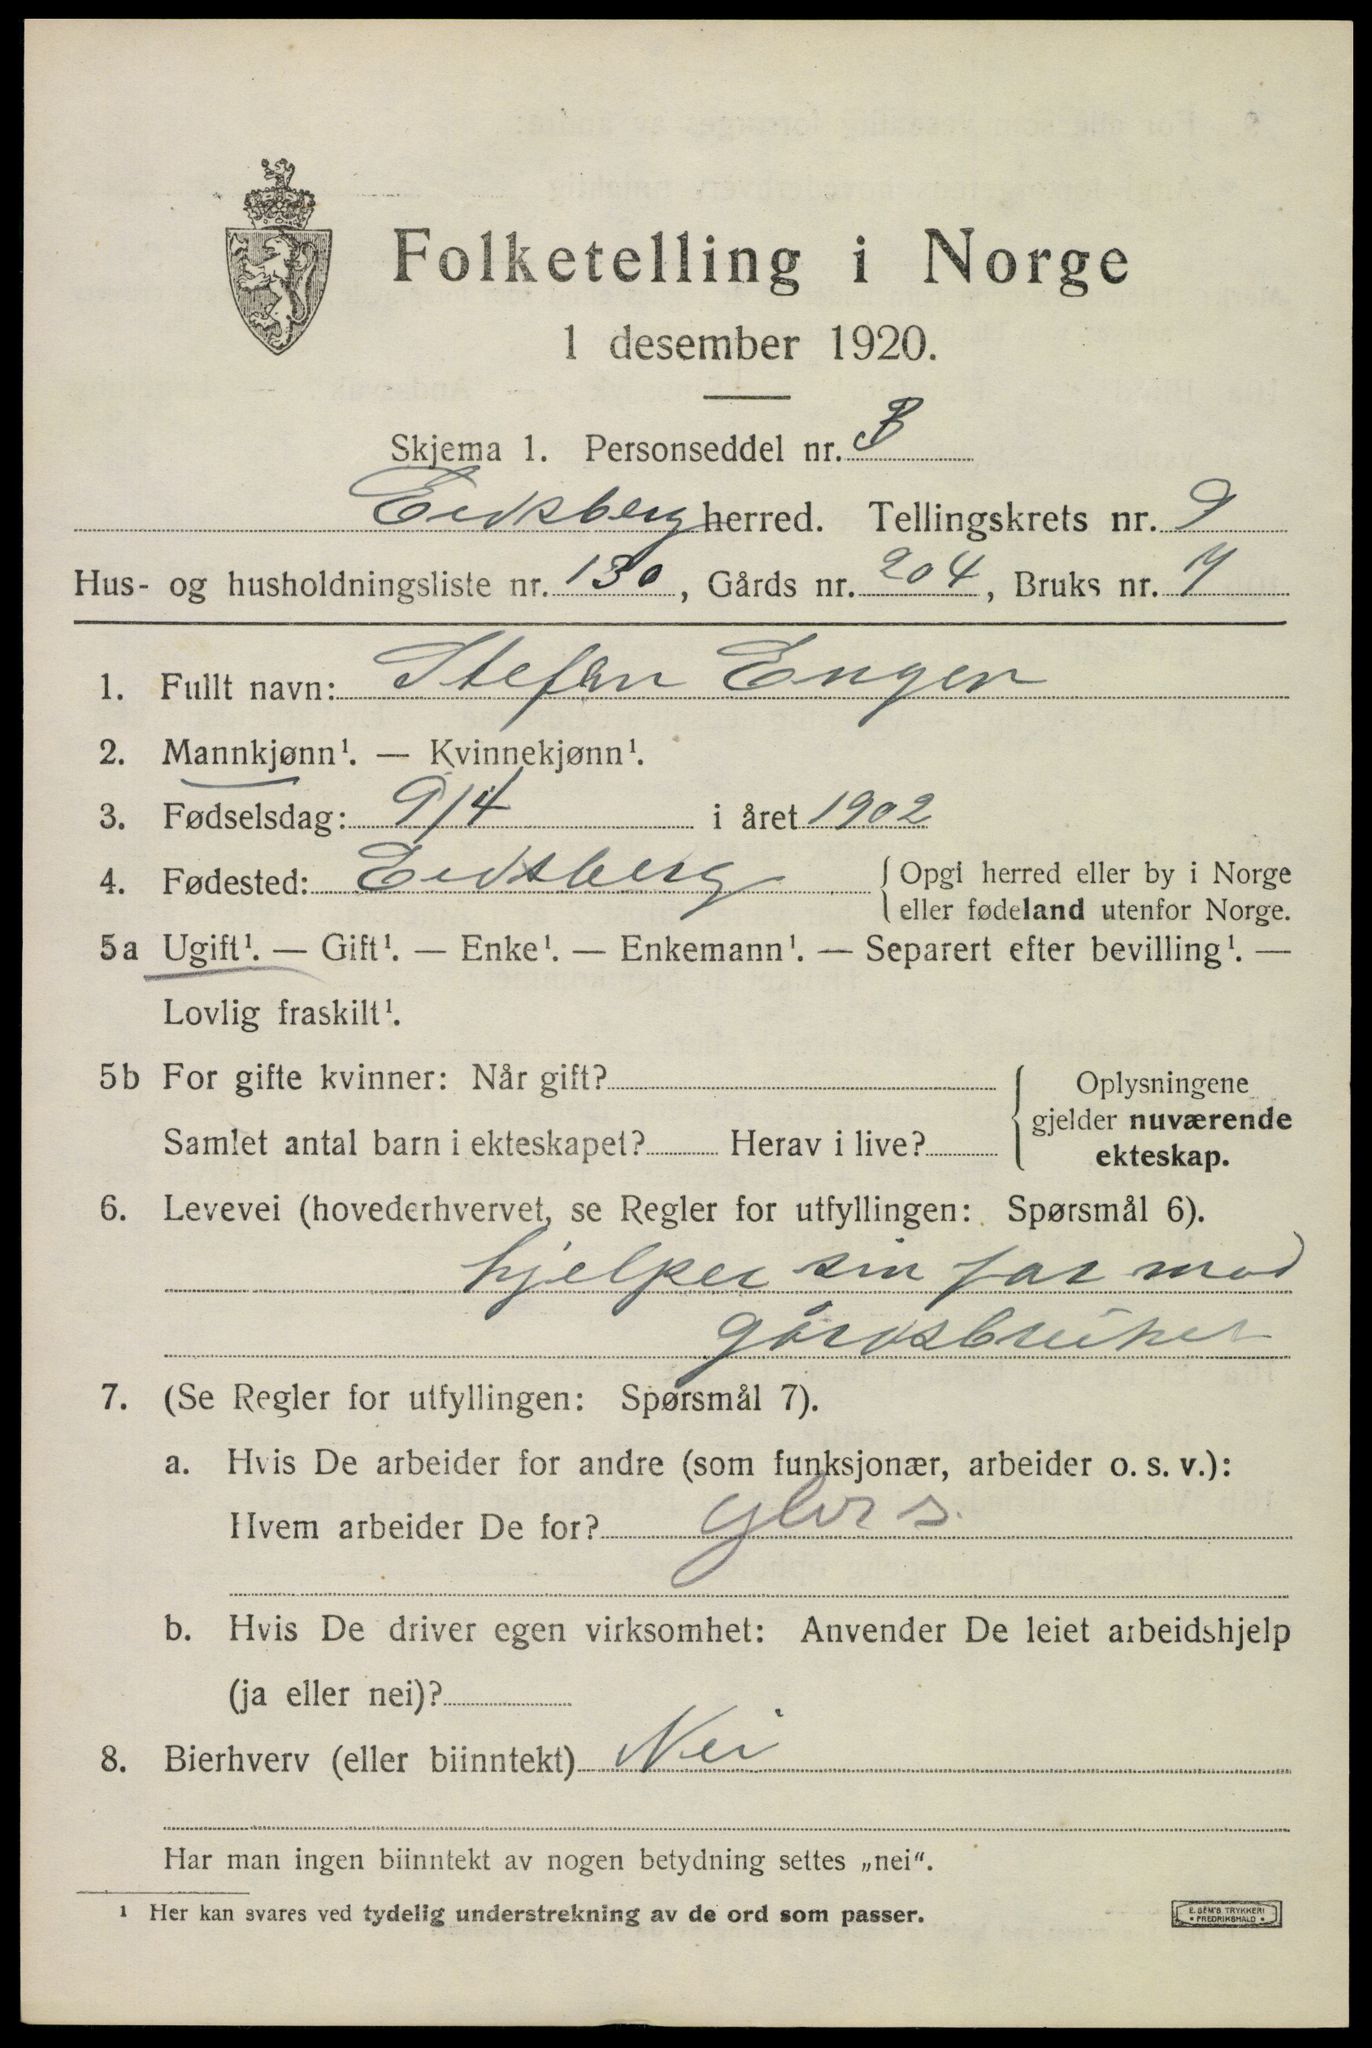 Folketelling i Norge
1 desember 1920.
Skjema 1. Personseddel nr. 3
Eidsberg herred. Tellingskrets nr. 9
Hus- og husholdningsliste nr. 130, Gårds nr. 204, Bruks nr. 7
1. Fullt navn: Stefan Engen
2. Mannkjønn¹. — Kvinnekjønn¹.
3. Fødselsdag: 9/4 i året 1902
4. Fødested: Eidsberg { Opgi herred eller by i Norge
eller fødeland utenfor Norge.
5a Ugift¹. — Gift¹. — Enke¹. — Enkemann¹. — Separert efter bevilling¹. —
Lovlig fraskilt¹.
5b For gifte kvinner: Når gift? { Oplysningene
gjelder nuværende
Samlet antal barn i ekteskapet? Herav i live? ekteskap.
6. Levevei (hovederhvervet, se Regler for utfyllingen: Spørsmål 6).
hjelper sin far med
gårdsbruket
7. (Se Regler for utfyllingen: Spørsmål 7).
a. Hvis De arbeider for andre (som funksjonær, arbeider o. s. v.):
Hvem arbeider De for?
b. Hvis De driver egen virksomhet: Anvender De leiet arbeidshjelp
(ja eller nei)?
8. Bierhverv (eller biinntekt) Nei
Har man ingen biinntekt av nogen betydning settes „nei“.
¹ Her kan svares ved tydelig understrekning av de ord som passer.
E. SEM'S TRYKKERI
* FREDRIKSHALD *